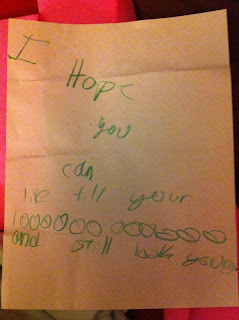 I
Hope
you
can
lie till your
1000000 000000
and still look young